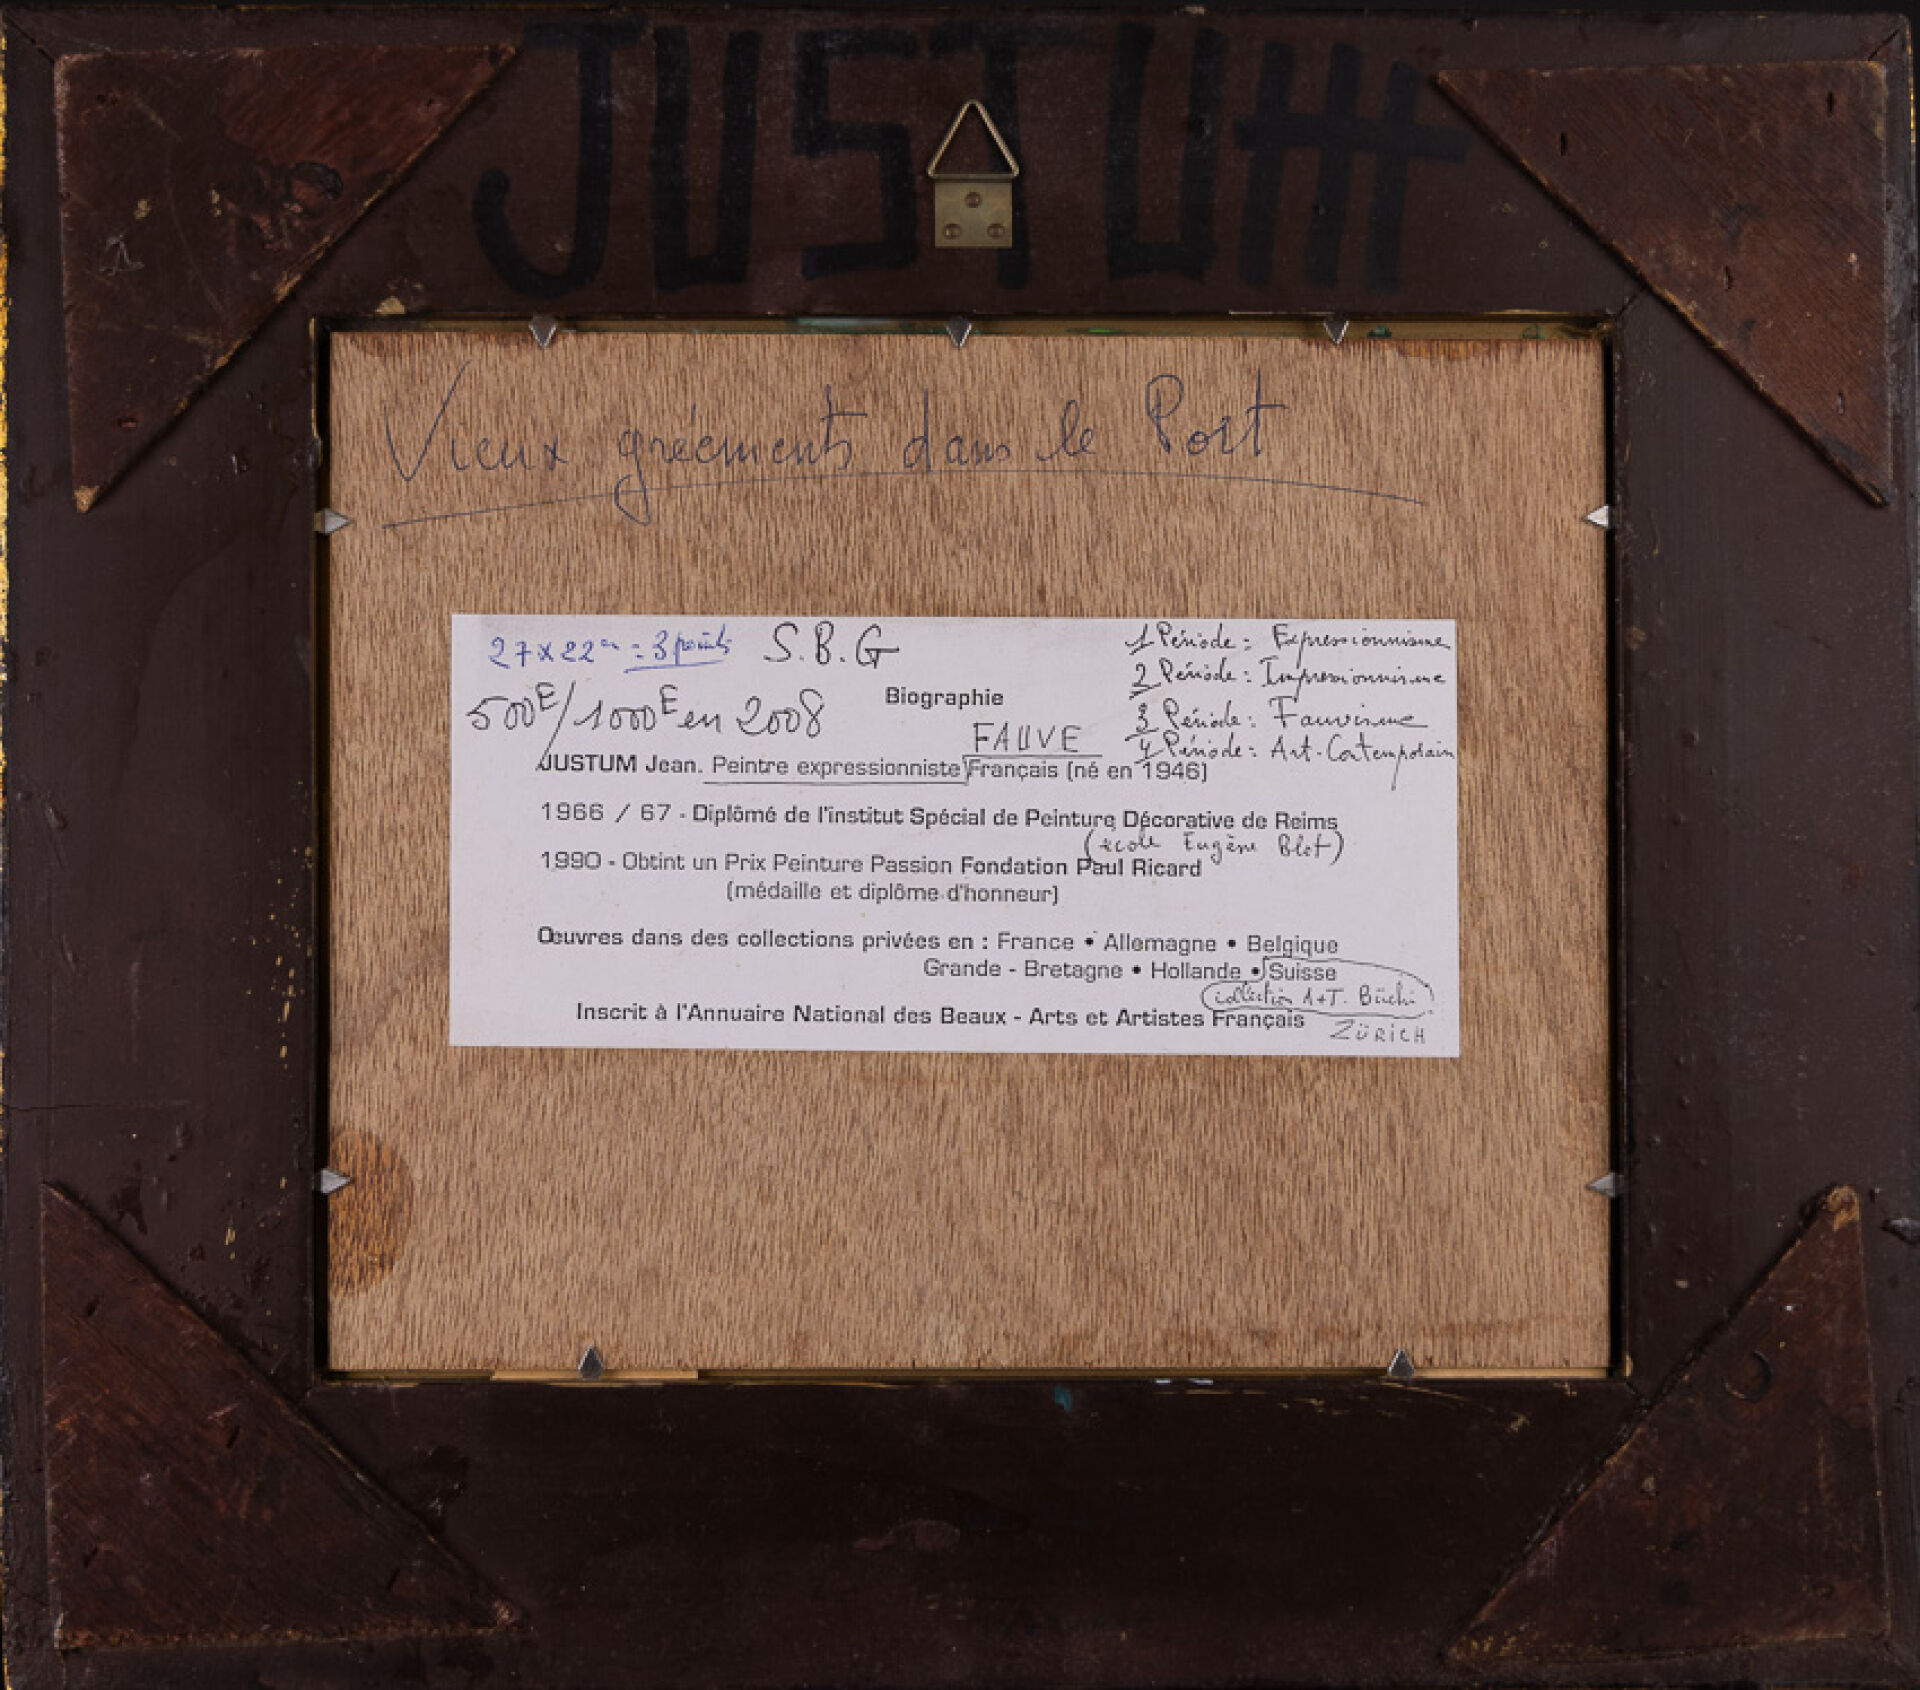 JUSTUM
Vieux gréements dans le Port
27x22cm = 3 points S.B.G
500E/1000E en 2008
1 Période : Expressionnisme
2 Période : Impressionnisme
3 Période : Fauvisme
4 Période : Art-Contemporain
Biographie
FAUVE
JUSTUM Jean. Peintre expressionniste Français (né en 1946)
1966 / 67 - Diplômé de l'institut Spécial de Peinture Décorative de Reims
(école Eugène Blot)
1990 - Obtint un Prix Peinture Passion Fondation Paul Ricard
(médaille et diplôme d'honneur)
Œuvres dans des collections privées en : France • Allemagne • Belgique
Grande - Bretagne • Hollande • Suisse
collection 1+T. Büchi
Inscrit à l'Annuaire National des Beaux - Arts et Artistes Français
ZÜRICH